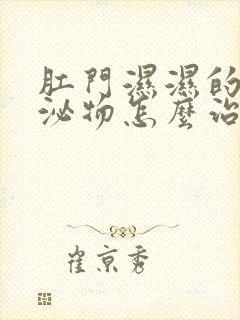 肛門濕濕的
泌物怎麼治
崔京秀